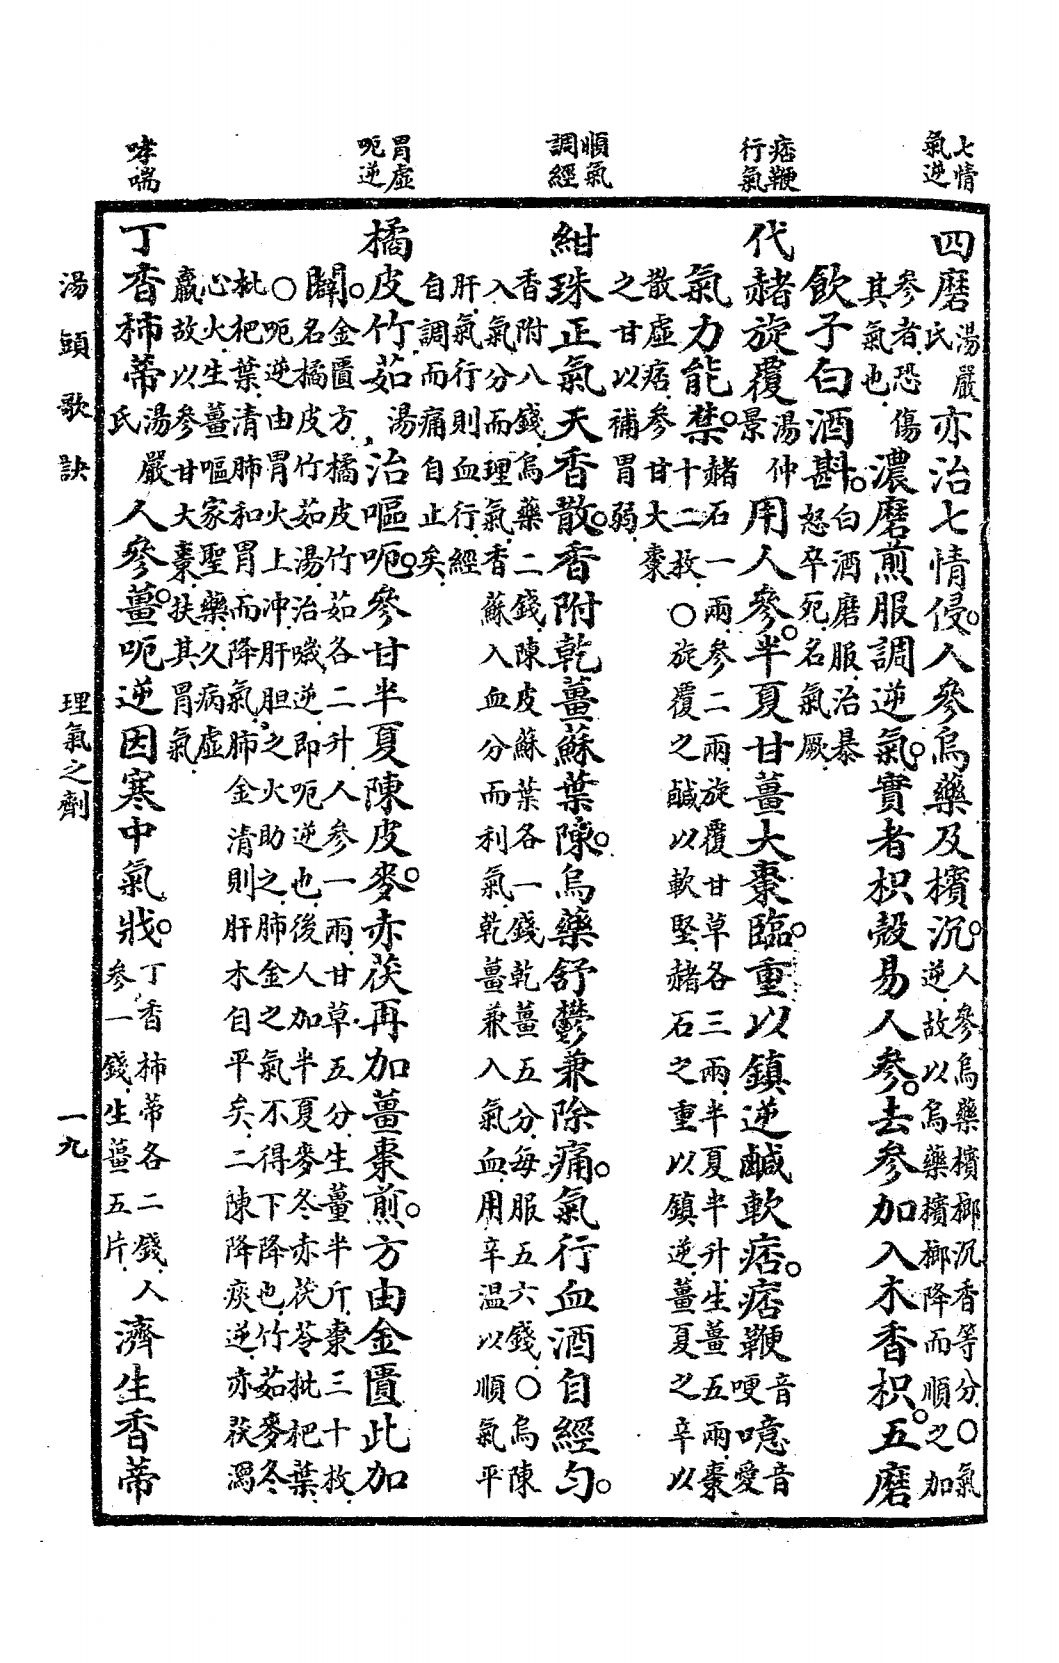 七情
氣逆
痞鞕
行氣
順氣
調經
胃虛
呃逆
哮喘
四磨湯嚴氏亦治七情侵。人參烏藥及檳沉。人參烏藥檳榔沉香等分〇氣
逆故以烏藥檳榔降而順之加
參者恐傷
其氣也濃磨煎服調逆氣。實者枳殼易人參。去參加入木香枳。五磨
飲子白酒斟。白酒磨服治暴
怒卒死名氣厥
代赭旋覆湯仲景用人參。半夏甘薑大棗臨。重以鎮逆鹹軟痞。痞鞕音哽噫音愛
氣力能禁。赭石一兩參二兩旋覆甘草各三兩半夏半升生薑五兩棗
十二枚〇旋覆之鹹以軟堅赭石之重以鎮逆薑夏之辛以
散虛痞參甘大棗
之甘以補胃弱
紺珠正氣天香散。香附乾薑蘇葉陳。烏藥舒鬱兼除痛。氣行血酒自經勻。
香附八錢烏藥二錢陳皮蘇葉各一錢乾薑五分每服五六錢〇烏陳
入氣分而理氣香蘇入血分而利氣乾薑兼入氣血用辛温以順氣平
肝氣行則血行經
自調而痛自止矣
橘皮竹茹湯治嘔呃。參甘半夏陳皮麥。赤茯再加薑棗煎。方由金匱此加
闢。金匱方橘皮竹茹各二升人參一兩甘草五分生薑半斤棗三十枚
名橘皮竹茹湯治噦逆即呃逆也後人加半夏麥冬赤茯苓枇杷葉
〇呃逆由胃火上冲肝胆之火助之肺金之氣不得下降也竹茹麥冬
枇杷葉清肺和胃而降氣肺金清則肝木自平矣二陳降痰逆赤茯瀉
心火生薑嘔家聖藥久病虛
羸故以參甘大棗扶其胃氣
丁香柿蒂湯嚴氏人參薑。呃逆因寒中氣戕。丁香柿蒂各二錢人
參一錢生薑五片濟生香蒂
湯頭歌訣
理氣之劑
一九